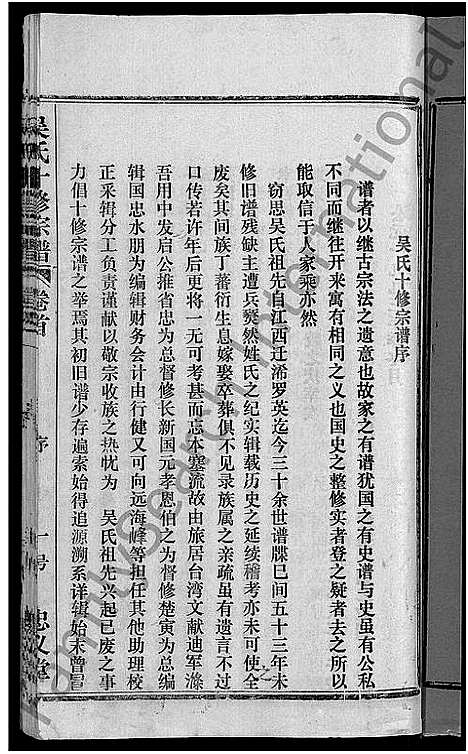 吴氏十修宗谱序
谱者以继古宗法之遗意也故家之有谱犹国之有史谱与史虽有公私
不同而继往开来寓有相同之义也国史之整修实者登之疑者去之所以
能取信于人家乘亦然
窃思吴氏祖先自江西迁浠罗英迄今三十余世谱牒已间五十三年未
修旧谱残缺主遭兵燹然姓氏之纪实辑载历史之延续稽考亦未可使全
废矣其间族丁蕃衍生息嫁娶卒葬俱不见录族属之亲疏虽有遗言不过
口传若许年后更将一无可考甚而忘本塞流故由旅居台湾文献迪军滌
吾用中发启公推省忠为总督修长新国元孝恩伯之为督修楚寅为总编
辑国忠水朋为编辑财务会计由行健又可向远海峰等担任其他助理校
正采辑分工负责谨献以敬宗收族之热忱为 吴氏祖先兴起已废之事
力倡十修宗谱之举焉其初旧谱少存遍索始得追源溯系详辑始末曾冒
吴氏十修宗谱 卷首 序 一号 忠义堂
FamilySearch International